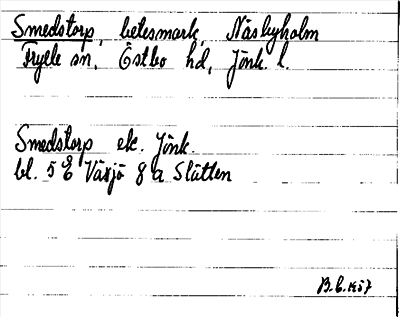 Smedstorp, betesmark, Näsbyholm
Fryele sn, Östbo hd, Jönk. l.
Smedstorp ek. Jönk.
bl. 5 E Växjö 8 a Slätten
B.E. 1957